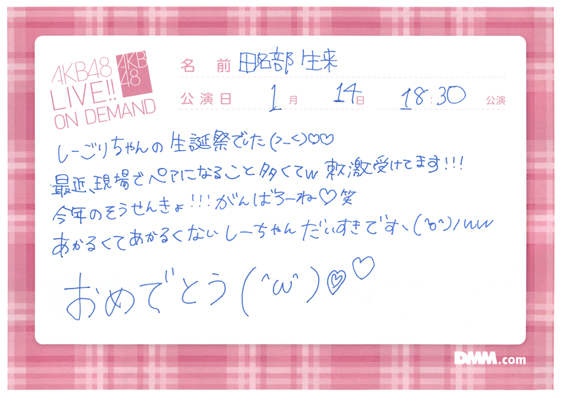 AKB48
LIVE!!
ON DEMAND
AKB
48
名前 田名部生来
公演日 1月 14日 18:30 公演
しーごりちゃんの生誕祭でした(>_<)♡♡
最近、現場でペアになること多くてw 刺激受けてます!!!
今年のそうせんきょ!!!がんばろーね♡笑
あかるくてあかるくないしーちゃんだいすきです、(^o^)ノww
おめでとう(^ω^)♡♡
DMM.com